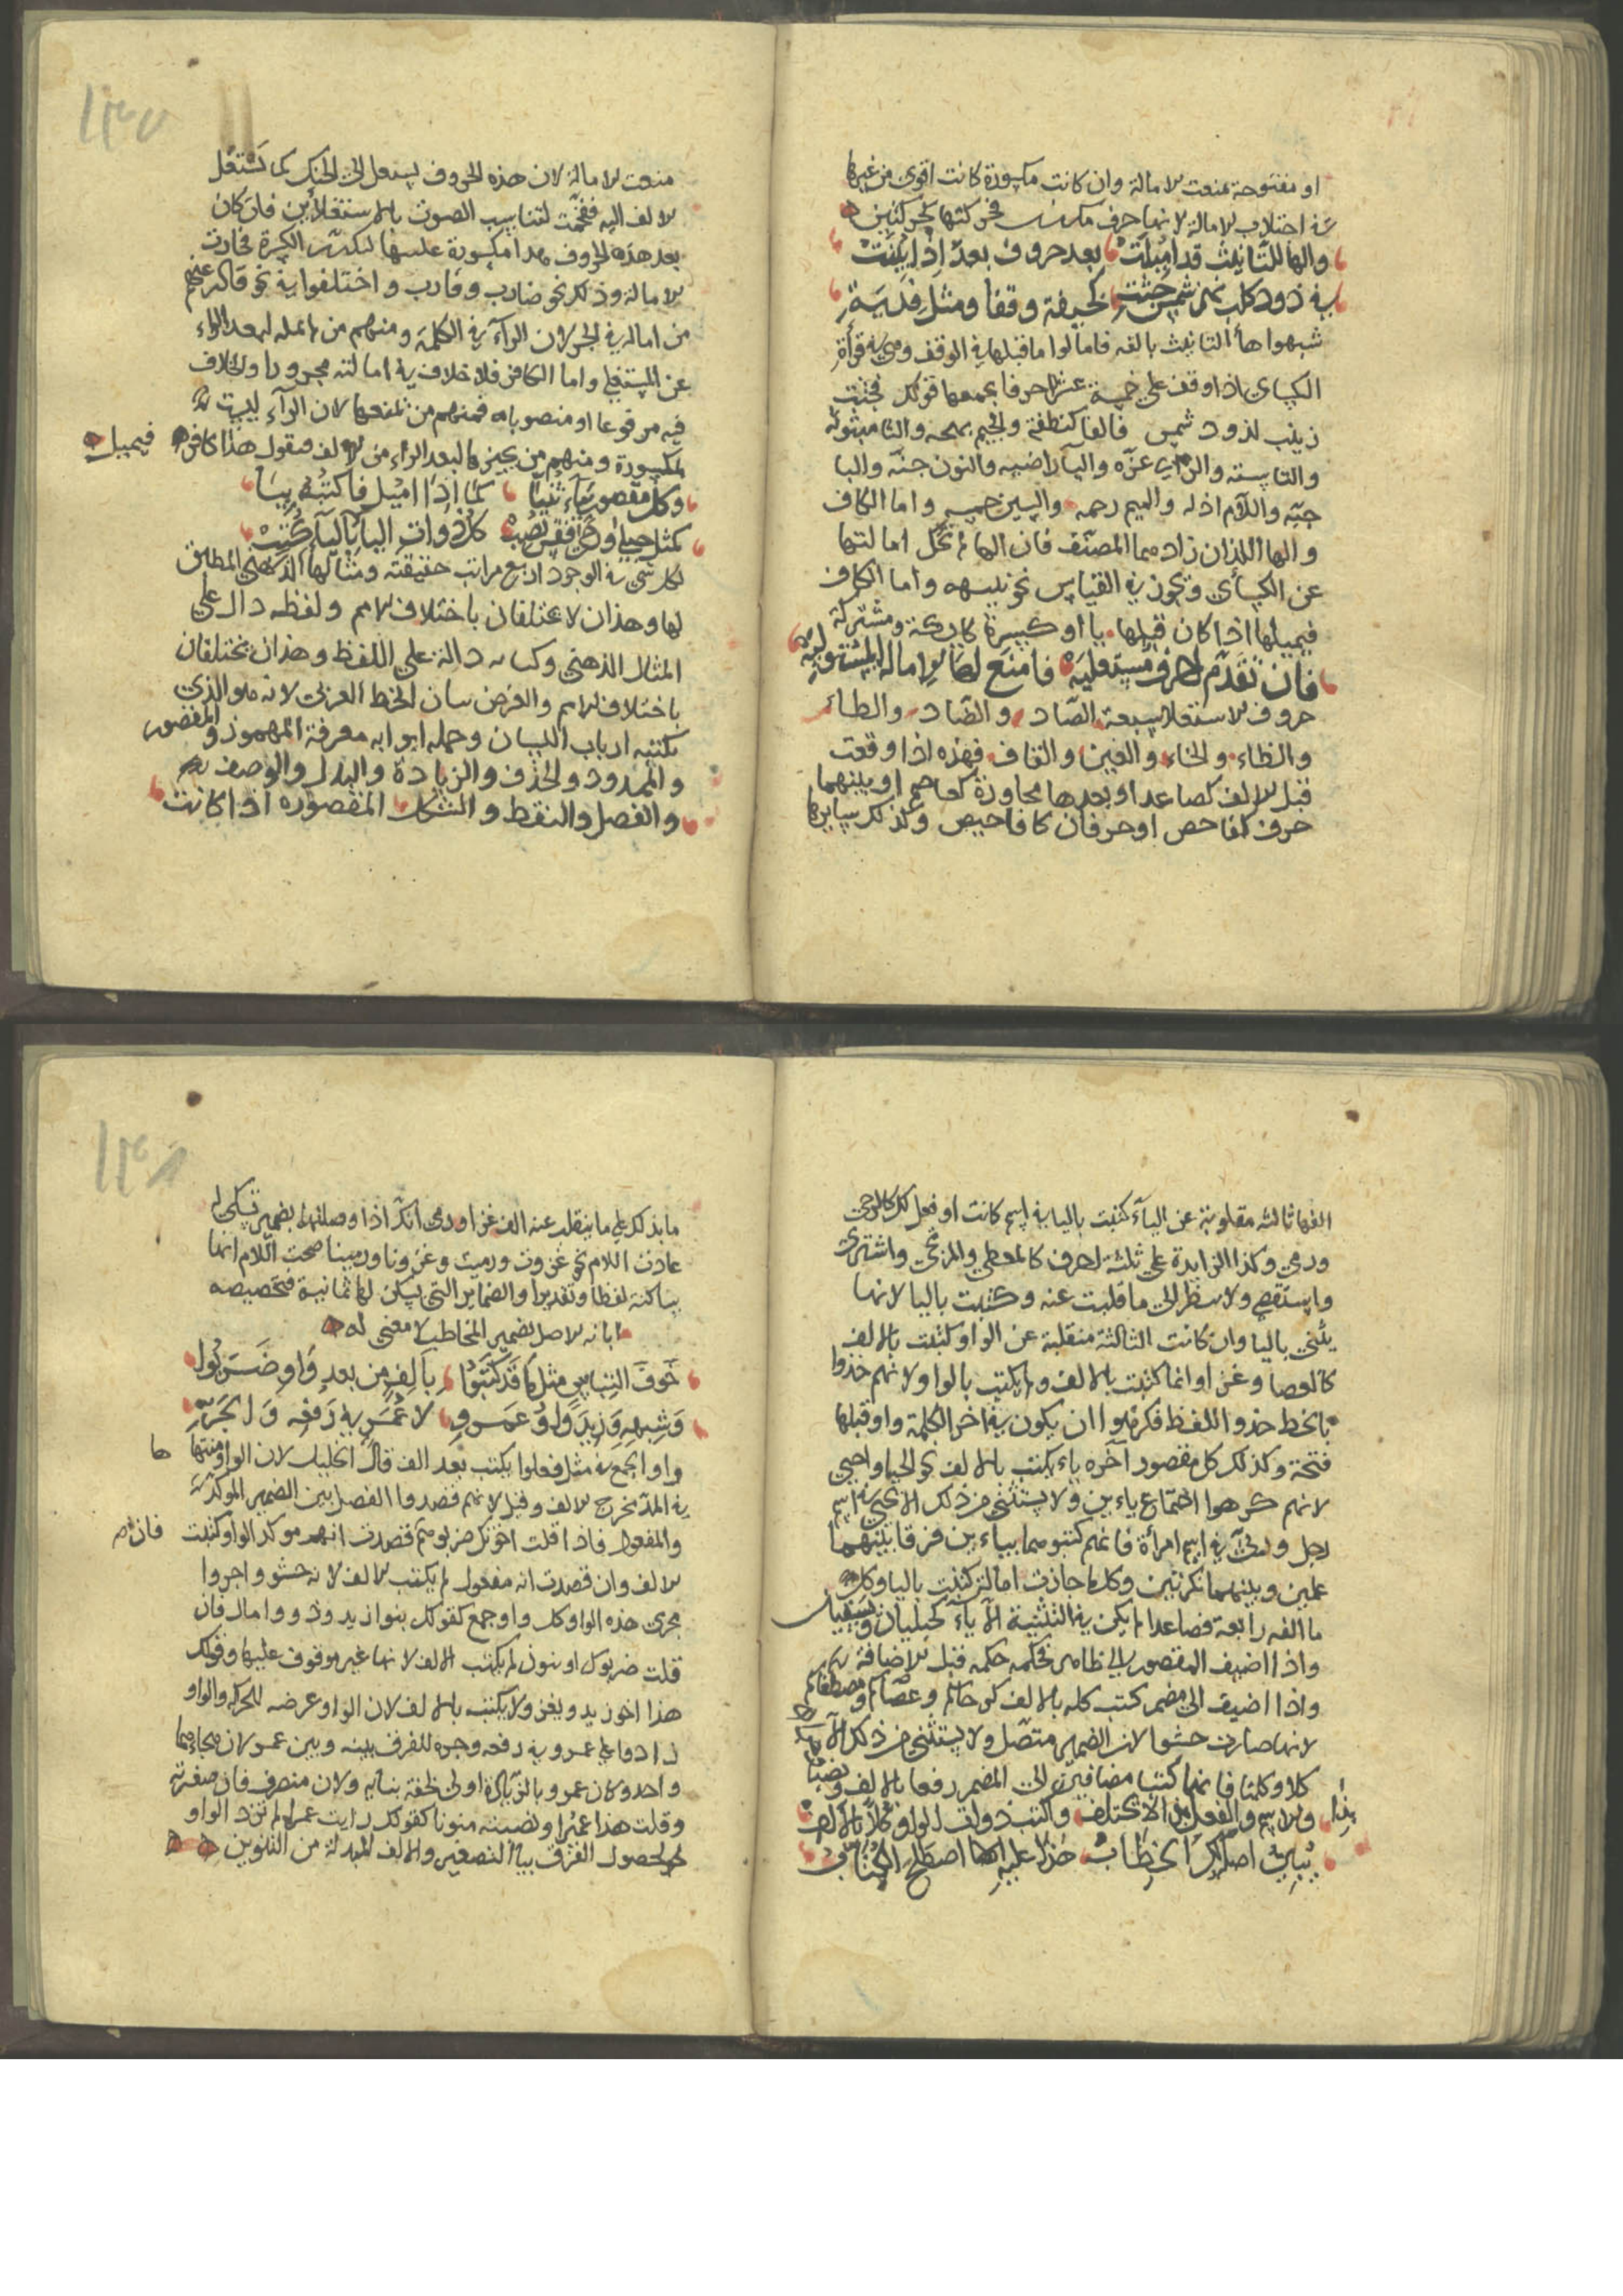 او مفتوحة منعت الامالة وان كانت مكسورة كانت اقوى من غيرها
في اجتلاب الامالة لانها حرف مكرر فجر كتها كحركتين
والها للتانيث قد اميلت بعد حروف بعدّ اذ ايقنت
في ذود كلب شمس جئت كخيفة وقفا ومثل فدية
شبهوا هاء التانيث بالفه فامالوا ما قبلها في الوقف وهي قرأة
الكساي اذا وقف على خمسة عشر حرفا يجمعها قولك فجئت
زينب لذود شمس فالفا كنطفة والجيم بهجه والثا مبثوثه
والتا ستة والزاي عزّه واليا راضيه والنون جنّه والبا
حبّه واللام اذله والميم رحمه والسين خمسه واما الكاف
والها اللذان زادهما المصنّف فان الها لم تحك امالتها
عن الكسأى وتجوز في القياس نحو نبيهه واما الكاف
فيميلها اذا كان قبلها يا او كسرة كايكة ومشتركة
فان تقدّم احرف مستعليه فامنع لها الامالة المستويه
حروف الاستعلا سبعة الصّاد والضّاد والطاء
والظاء والخاء والغين والقاف فهذه اذا وقعت
قبل الالف كصاعد او بعدها مجاورة كعاصم او بينهما
حرف كفاحص او حرفان كافاحيص وكذلك سايرها
١٣٧
منعت الامالة لان هذه الحروف يستعل الى الحنك كما تستعل
الالف اليه ففخمت لتناسب الصوت بالاستعلائين فان كان
بعد هذه الحروف راء مكسورة غلبتها لتكرر الكسرة فجازت
الامالة وذلك نحو ضارب وقارب واختلفوا في نحو قادر فمنهم
من اماله في الجر لان الرآء في الكلمة ومنهم من لم يمله لبعد الراء
عن المستعلي واما الكافر فلا خلاف في امالته مجرورا والخلاف
فيه مرفوعا او منصوبا فمنهم من يمنعها لان الرآء ليست
بمكسورة ومنهم من يجيزها لبعد الراء من الالف فيقول هذا كافر فيميل
وكل مقصور بياء ثنيا كما اذا اميل فاكتبه بيا
كمثل حبلى كل ذوات اليا باليآء كتبت
لكل شي في الوجود اربع مراتب حقيقته ومثالها الذهني المطابق
لها وهذان لا يختلفان باختلاف الامم ولفظه دال على
المثال الذهني وكتابه دالة على اللفظ وهذان يختلفان
باختلاف الامم والغرض بيان الخط العربي لانه هو الذي
يكتبه ارباب اللسان وجمله ابوابه معرفة المهموز والمقصور
والممدود والحذف والزيادة والبدل والوصف
والفصل والنقط والشكل المقصوره اذا كانت
الفها ثالثه مقلوبة عن اليآء كتبت باليا في اسم كانت او فعل كالرحى
ورمى وكذا الزايدة على ثلثة احرف كالمعطي والمرتجى واشترى
واستقصى ولا ينظر الى ما قلبت عنه وكتبت باليا لانها
يثنى باليا وان كانت الثالثة منقلبة عن الواو كتبت بالالف
كالعصا وغزا وانما كتبت بالالف ولم يكتب بالواو لانهم حذوا
بالخط حذو اللفظ فكرهوا ان يكون في اخر الكلمة واو قبلها
فتحة وكذلك كل مقصور آخره ياء يكتب بالالف نحو الحيا واحيى
لانهم كرهوا اجتماع ياءين ولا يستثنى من ذلك الا يحيى في اسم
رجل وريّى في اسم امرأة فانهم كتبوهما بياءين فرقا بينهما
علمين وبينهما نكرتين وكل ما جازت امالته كتبت باليا وكل
ما الفه رابعة فصاعدا لم يكن في التثنية الا ياء كحبليان
واذا اضيف المقصور الى ظاهر فحكمه حكمه قبل الاضافة
واذا اضيف الى مضمر كتب كله بالالف كرحاكم وعصاكم ومصطفاكم
لانها صارت حشوا لان الضمير متصل ولا يستثنى من ذلك الا
كلا وكلتا فانهما كتبا مضافين الى المضمر رفعا بالالف ونصبا
والاسم والفعل بذا لا يختلف واكتب ذوات الواو كلا بالالف
يبدي اصلك الخطاب هذا عليه اصطلح الكتاب
١٣٨
ما يدلك على ما ينقلب عنه الف غزا ورمى انك اذا وصلتها بضمير تسكن له
عادت اللام نحو غزوت ورميت وغزونا ورمينا صحت اللام انها
ساكنة لفظا وتقديرا والضماير التي يسكن لها ثمانية فتخصيصه
ابانه الاصل بضمير المخاطب لا معنى له
خوف التباس مثل ما قد كتبوا بالف من بعد واو ضربوا
وشبهه وزيد واو عمرو لا عمر في رفعه والجر
واو الجمع في مثل فعلوا يكتب بعد الف قال الخليل لان الواو منتهاها
في المد مخرج الالف وقيل لانهم قصدوا الفصل بين الضمير الموكد
والمفعول فاذا قلت اخوتك ضربوهم قصدت انهم موكد الواو كتبت
الالف وان قصدت انه مفعول لم يكتب الالف لانه حشو واجروا
مجرى هذه الواو كل واو جمع كقولك بنوا زيد وذووا مال فان
قلت ضربوك او بنون لم يكتب الالف لانها غير موقوف عليها وقولك
هذا اخو زيد ويغزو لا يكتب بالالف لان الواو عرضه للحركه والواو
زادوا على عمرو في رفعه وجره للفرق بينه وبين عمر لان هجاءهما
واحد وكان عمرو بالزيادة اولى لخفة بنايه ولانه منصرف فان صغرته
وقلت هذا عميرا ونصبته منونا كقولك رايت عمرا لم تزد الواو
لحصول الفرق بياء التصغير والالف المبدلة من التنوين